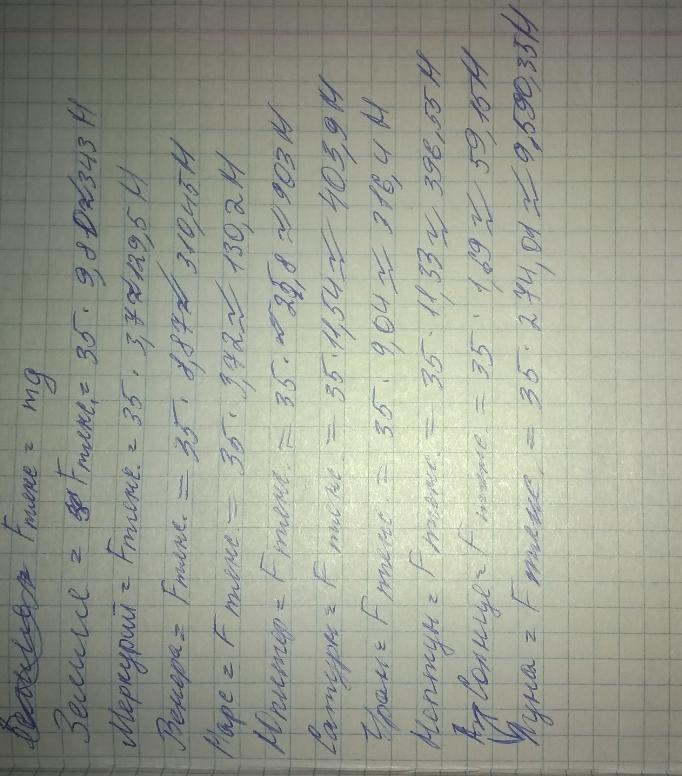 Fтяже = mg
Земле = Fтяже. = 35 · 9,81 ≈ 343 Н
Меркурий = Fтяже. = 35 · 3,7 ≈ 129,5 Н
Венера = Fтяже. = 35 · 8,87 ≈ 310,45 Н
Марс = Fтяже = 35 · 3,72 ≈ 130,2 Н
Юпитер = Fтяже. = 35 · 25,8 ≈ 903 Н
Сатурн = Fтяже. = 35 · 11,54 ≈ 403,9 Н
Уран = Fтяже. = 35 · 9,04 ≈ 316,4 Н
Нептун = Fтяже. = 35 · 11,33 ≈ 396,55 Н
Солнце = Fтяже. = 35 · 1,69 ≈ 59,15 Н
Луна = Fтяже. = 35 · 274,01 ≈ 9,590,35 Н